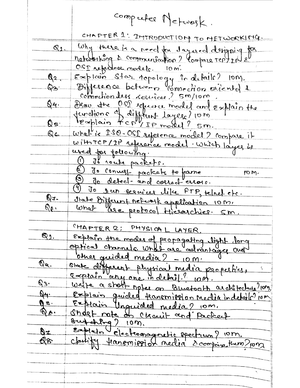 Computer Network.
CHAPTER 1: INTRODUCTION TO NETWORKING.
Q1. Why there is a need for layered designing for
networking & communication? Compare TCP/IP &
OSI reference models. 10m.
Q2. Explain Star topology in details? 10M.
Q3. Difference between connection oriented &
connectionless services? 5m/10m
Q4. Draw the OSI reference model and explain the
functions of different layers? 10m
Q5. Explain TCP/IP model? 5m.
Q6. What is ISO-OSI reference model? Compare it
with TCP/IP reference model. Which layer is
used for following:
① To route packets.
② To convert packets to frame 10m.
③ To detect and correct errors.
④ To run services like FTP, telnet etc.
Q7. State Different network application 10m.
Q8. What are protocol Hierarchies. 5m.
CHAPTER 2: PHYSICAL LAYER.
Q1. Explain the modes of propagating light long
optical channels. What are advantages over
other guided media? - 10m.
Q2. State different physical media properties,
Explain any one in detail? 10m.
Q3. Write a short notes on Bluetooth architecture? 10m
Q4. Explain guided transmission media in details? 10m
Q5. Explain unguided media? 10m.
Q6. Short note on Circuit and Packet
Switching? 10m.
Q7. Explain electromagnetic spectrum? 10m.
Q8. Classify transmission media & compare them? 10m